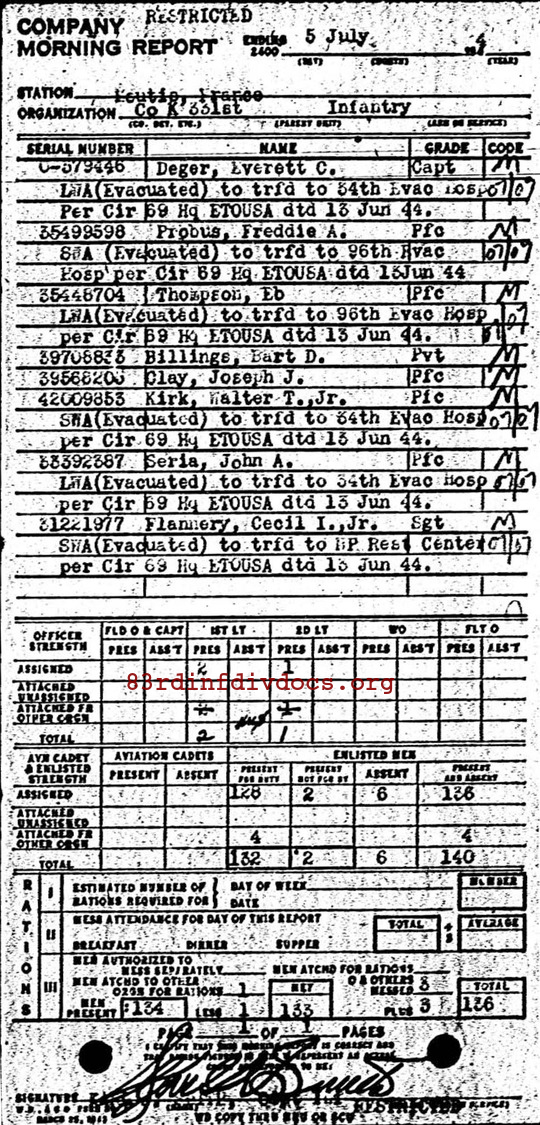 COMPANY RESTRICTED
MORNING REPORT ENDING 2400 5 July 4
(DAY) (MONTH) (YEAR)
STATION France
ORGANIZATION Co K 331st Infantry
(CO. DET. ETC.) (PARENT UNIT) (ARM OR SERVICE)
SERIAL NUMBER NAME GRADE CODE
O-579446 Deger, Everett C. Capt M
LWA(Evacuated) to trfd to 34th Evac Hosp 07/07
Per Cir 69 Hq ETOUSA dtd 13 Jun 44.
35499598 Probus, Freddie A. Pfc M
SWA (Evacuated) to trfd to 96th Evac 07/07
Hosp per Cir 69 Hq ETOUSA dtd 13Jun 44
35448704 Thompson, Eb Pfc M
LWA(Evacuated) to trfd to 96th Evac Hosp 07
per Cir 69 Hq ETOUSA dtd 13 Jun 44. 07
Billings, Bart D. Pvt M
Clay, Joseph J. Pfc M
42009853 Kirk, Walter T.,Jr. Pfc M
SWA(Evacuated) to trfd to 34th Evac Hosp 07/07
per Cir 69 Hq ETOUSA dtd 13 Jun 44.
33392387 Seria, John A. Pfc M
LWA(Evacuated) to trfd to 34th Evac Hosp 07/07
per Cir 69 Hq ETOUSA dtd 13 Jun 44.
31221977 Flannery, Cecil I.,Jr. Sgt M
SWA(Evacuated) to trfd to Rest Center 07/07
per Cir 69 Hq ETOUSA dtd 13 Jun 44.
OFFICER STRENGTH FLD O & CAPT 1ST LT 2D LT WO FLT O
PRES ABS'T PRES ABS'T PRES ABS'T PRES ABS'T PRES ABS'T
ASSIGNED 2 1
83rdinfdivdocs.org
ATTACHED UNASSIGNED
ATTACHED FR OTHER ORGN 1
TOTAL 2 1
AVN CADET & ENLISTED STRENGTH AVIATION CADETS ENLISTED MEN
PRESENT ABSENT PRESENT FOR DUTY PRESENT NOT FOR DY ABSENT PRESENT AND ABSENT
ASSIGNED 128 2 6 136
ATTACHED UNASSIGNED
ATTACHED FR OTHER ORGN 4 4
TOTAL 132 2 6 140
RATIONS
I ESTIMATED NUMBER OF RATIONS REQUIRED FOR DAY OF WEEK DATE NUMBER
II MESS ATTENDANCE FOR DAY OF THIS REPORT TOTAL ÷3 AVERAGE
BREAKFAST DINNER SUPPER
III MEN AUTHORIZED TO MESS SEPARATELY MEN ATCHD FOR RATIONS
MEN ATCHD TO OTHER ORGN FOR RATIONS 1 NET O & OTHERS MESSED 3 TOTAL
MEN PRESENT 134 LESS 1 133 PLUS 3 136
PAGE 1 OF 1 PAGES
I CERTIFY THAT THIS MORNING REPORT IS CORRECT AND
SIGNATURE
RESTRICTED
MARCH 25, 1943